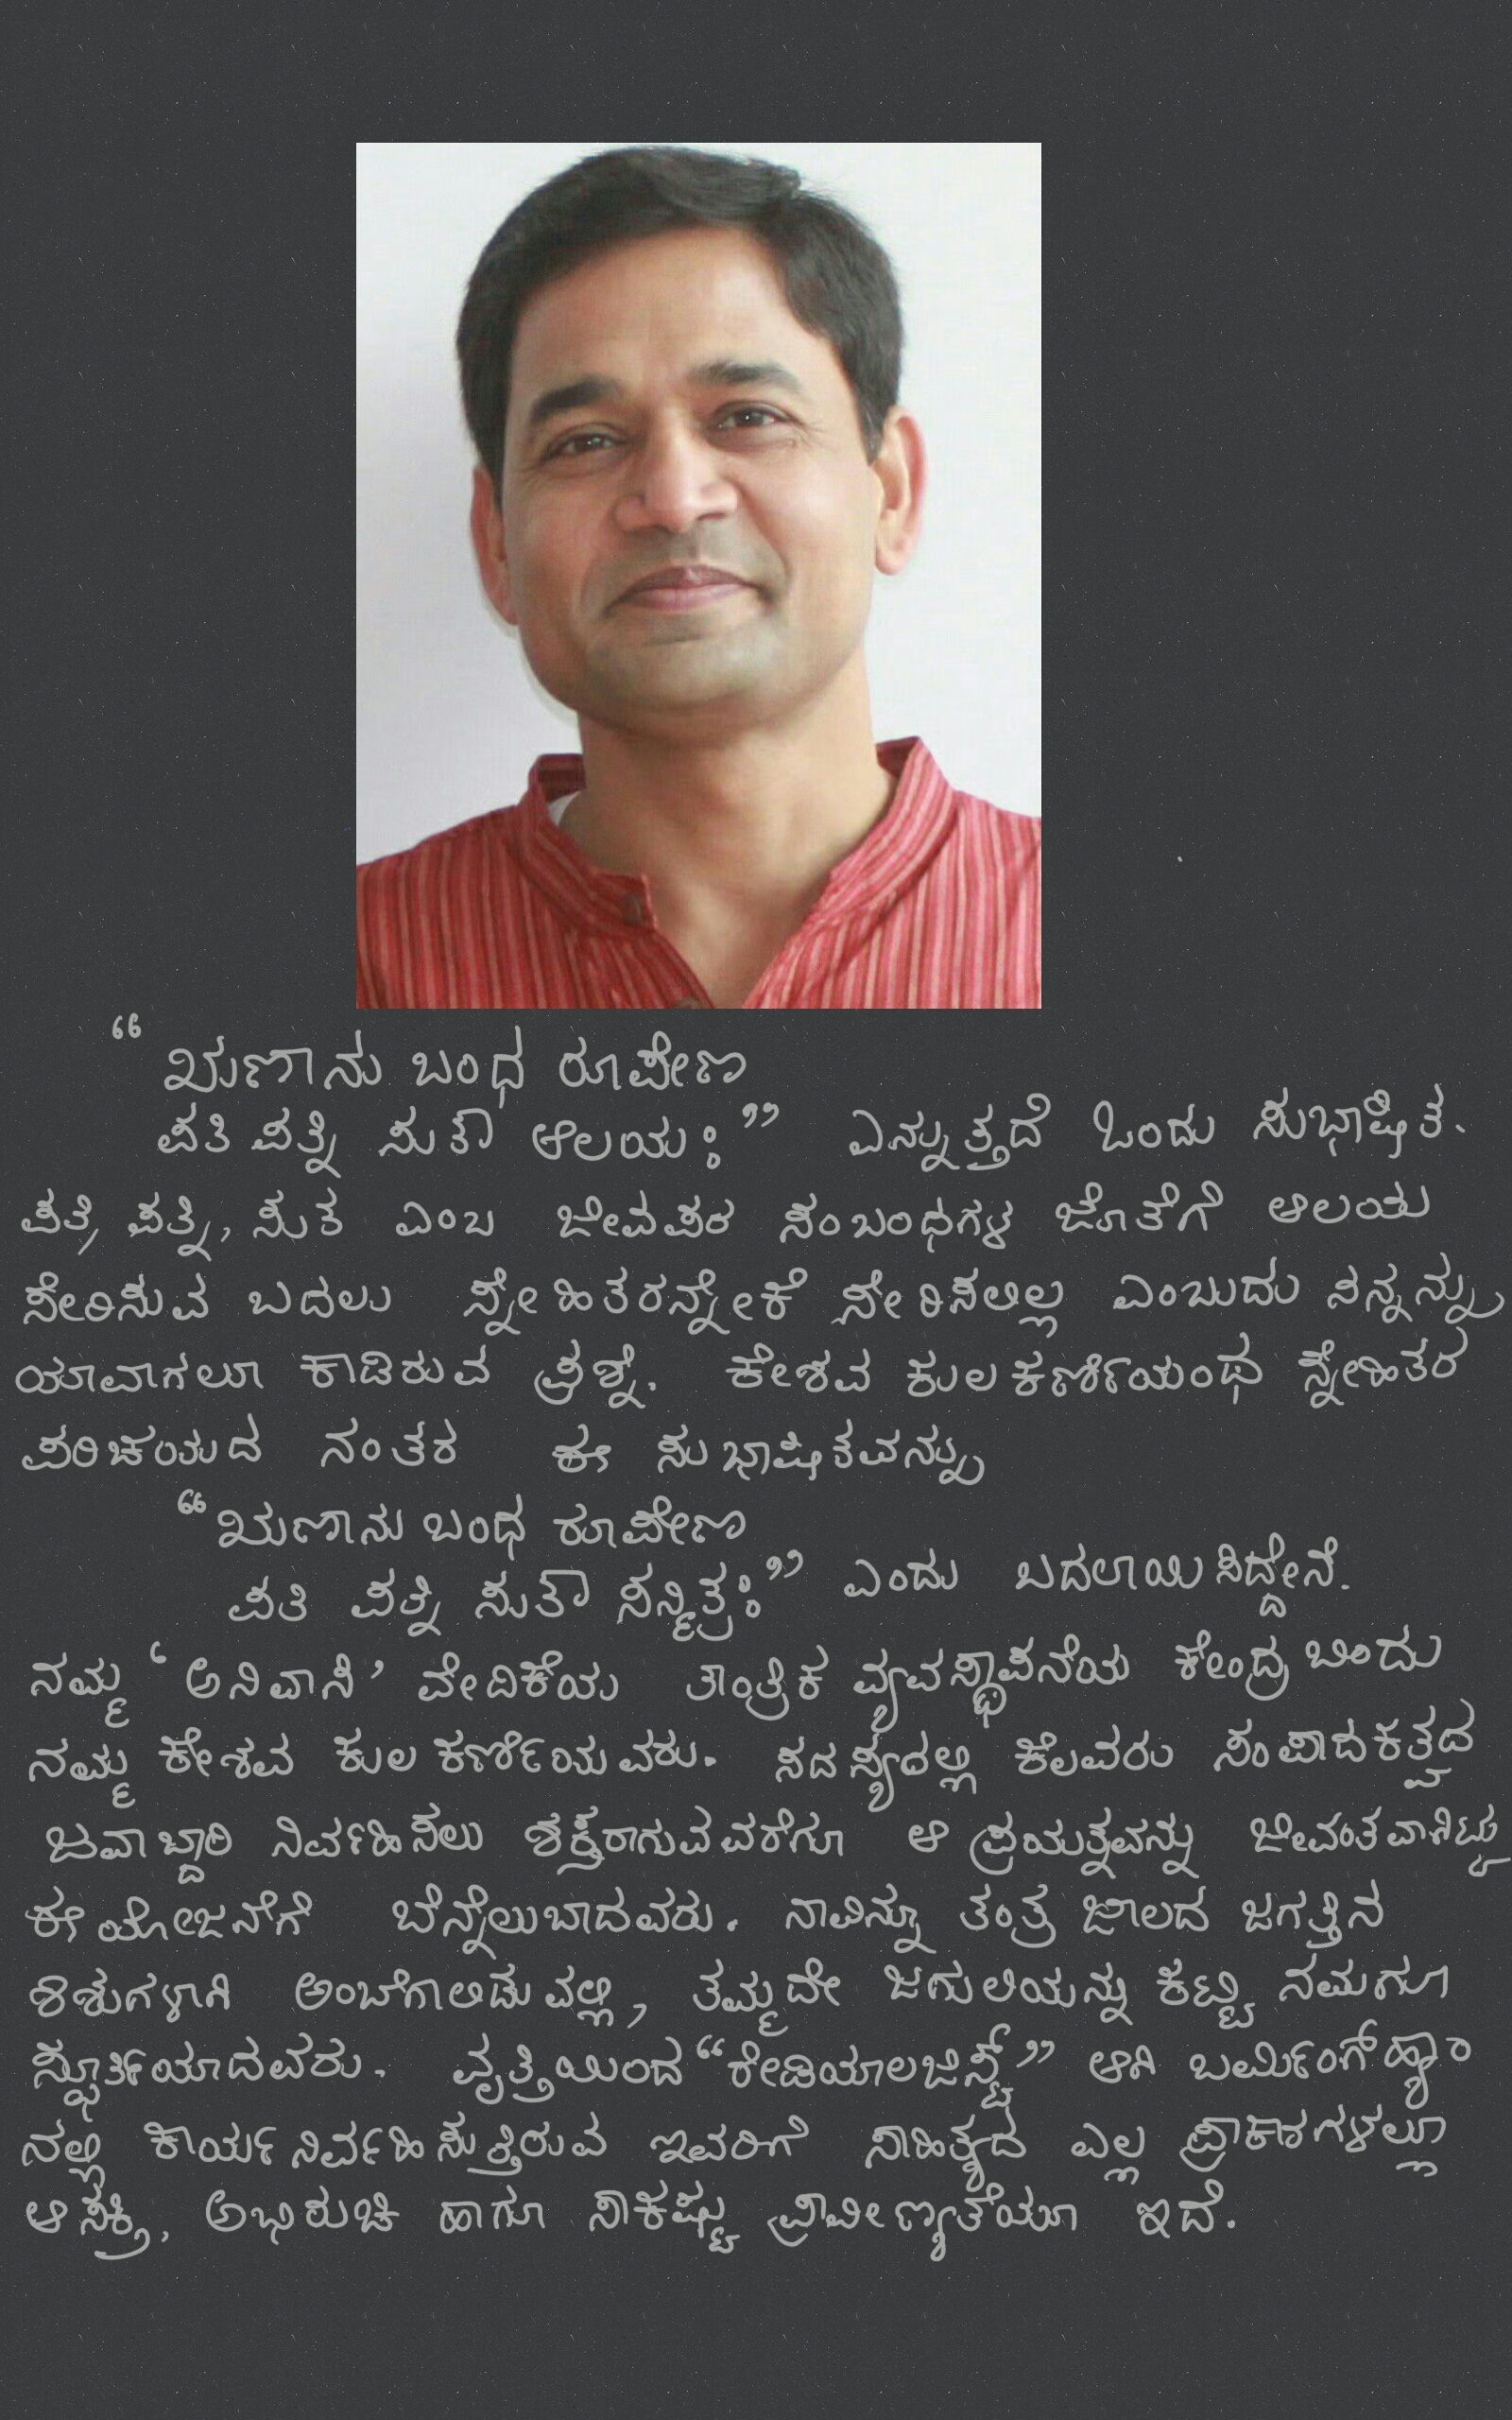 “ ಋಣಾನು ಬಂಧ ರೂಪೇಣ
ಪತಿ ಪತ್ನಿ ಸುತೌ ಆಲಯಃ ” ಎನ್ನುತ್ತದೆ ಓಂದು ಸುಭಾಷಿತ.
ಪತಿ, ಪತ್ನಿ, ಸುತ ಎಂಬ ಜೀವಪರ ಸಂಬಂಧಗಳ ಜೊತೆಗೆ ಆಲಯ
ಸೇರಿಸುವ ಬದಲು ಸ್ನೇಹಿತರನ್ನೇಕೆ ಸೇರಿಸಲಿಲ್ಲ ಎಂಬುದು ನನ್ನನ್ನು
ಯಾವಾಗಲೂ ಕಾಡಿರುವ ಪ್ರಶ್ನೆ. ಕೇಶವ ಕುಲಕರ್ಣಿಯಂಥ ಸ್ನೇಹಿತರ
ಪರಿಚಯದ ನಂತರ ಈ ಸುಭಾಷಿತವನ್ನು
“ ಋಣಾನು ಬಂಧ ರೂಪೇಣ
ಪತಿ ಪತ್ನಿ ಸುತೌ ಸನ್ಮಿತ್ರಃ ” ಎಂದು ಬದಲಾಯಿಸಿದ್ದೇನೆ.
ನಮ್ಮ ‘ ಅನಿವಾಸಿ ’ ವೇದಿಕೆಯ ತಾಂತ್ರಿಕ ವ್ಯವಸ್ಥಾಪನೆಯ ಕೇಂದ್ರ ಬಿಂದು
ನಮ್ಮ ಕೇಶವ ಕುಲಕರ್ಣಿಯವರು. ಸದಸ್ಯರಲ್ಲಿ ಕೆಲವರು ಸಂಪಾದಕತ್ವದ
ಜವಾಬ್ದಾರಿ ನಿರ್ವಹಿಸಲು ಶಕ್ತರಾಗುವವರೆಗೂ ಆ ಪ್ರಯತ್ನವನ್ನು ಜೀವಂತವಾಗಿಟ್ಟು
ಈ ಯೋಜನೆಗೆ ಬೆನ್ನೆಲುಬಾದವರು. ನಾವಿನ್ನೂ ತಂತ್ರ ಜಾಲದ ಜಗತ್ತಿನ
ಶಿಶುಗಳಾಗಿ ಅಂಬೆಗಾಲಿಡುವಲ್ಲಿ, ತಮ್ಮದೇ ಜಗುಲಿಯನ್ನು ಕಟ್ಟಿ ನಮಗೂ
ಸ್ಫೂರ್ತಿಯಾದವರು. ವೃತ್ತಿಯಿಂದ “ ರೇಡಿಯಾಲಜಿಸ್ಟ್ ” ಆಗಿ ಬರ್ಮಿಂಗ್‌ಹ್ಯಾಂ
ನಲ್ಲಿ ಕಾರ್ಯ ನಿರ್ವಹಿಸುತ್ತಿರುವ ಇವರಿಗೆ ಸಾಹಿತ್ಯದ ಎಲ್ಲ ಪ್ರಾಕಾರಗಳಲ್ಲೂ
ಆಸಕ್ತಿ, ಅಭಿರುಚಿ ಹಾಗೂ ಸಾಕಷ್ಟು ಪ್ರಾವೀಣ್ಯತೆಯೂ ಇದೆ.